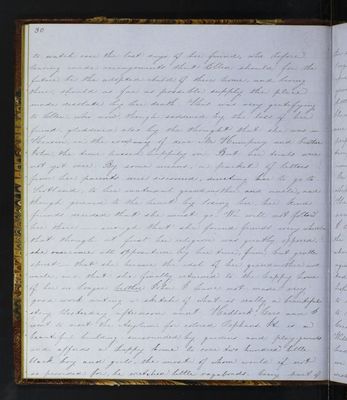 30
to watch over the last days of her friend, who before
leaving made arrangements that Ellen should for the
future be the adopted child of there home, and being
there, should as far as possible supply the place
made desolate by her death. This was very gratifying
to Ellen who even though saddened by the loss of her
friend, gladdened also by the thought that she was
in the company of dear Mr Humphrey and
But her trials were
not yet over. By some means, a packet of letters
from her parents were discovered, directing her to go to
Scotland, to her maternal grandmother and uncle, and
though grievous to the heart by losing her, her kind
friends decided that she must go. We will not follow
her there enough that she found friends
that though at first her religion was greatly opposed
she overcame all opposition by her firm but gentle
that she became the idol of her grandmother
and that she finally returned to the happy home
of her no longer brother I have not made very
good work making a sketch of what is really a beautiful
story. Yesterday afternoon aunt and I
went to visit the Asylum for colored Orphans. It is a
beautiful building surrounded by gardens and playgrounds
and affords a happy home to over two hundred little
black boys and girls the most of whom would if not
so provided for, be wretched little vagabonds. Every part of